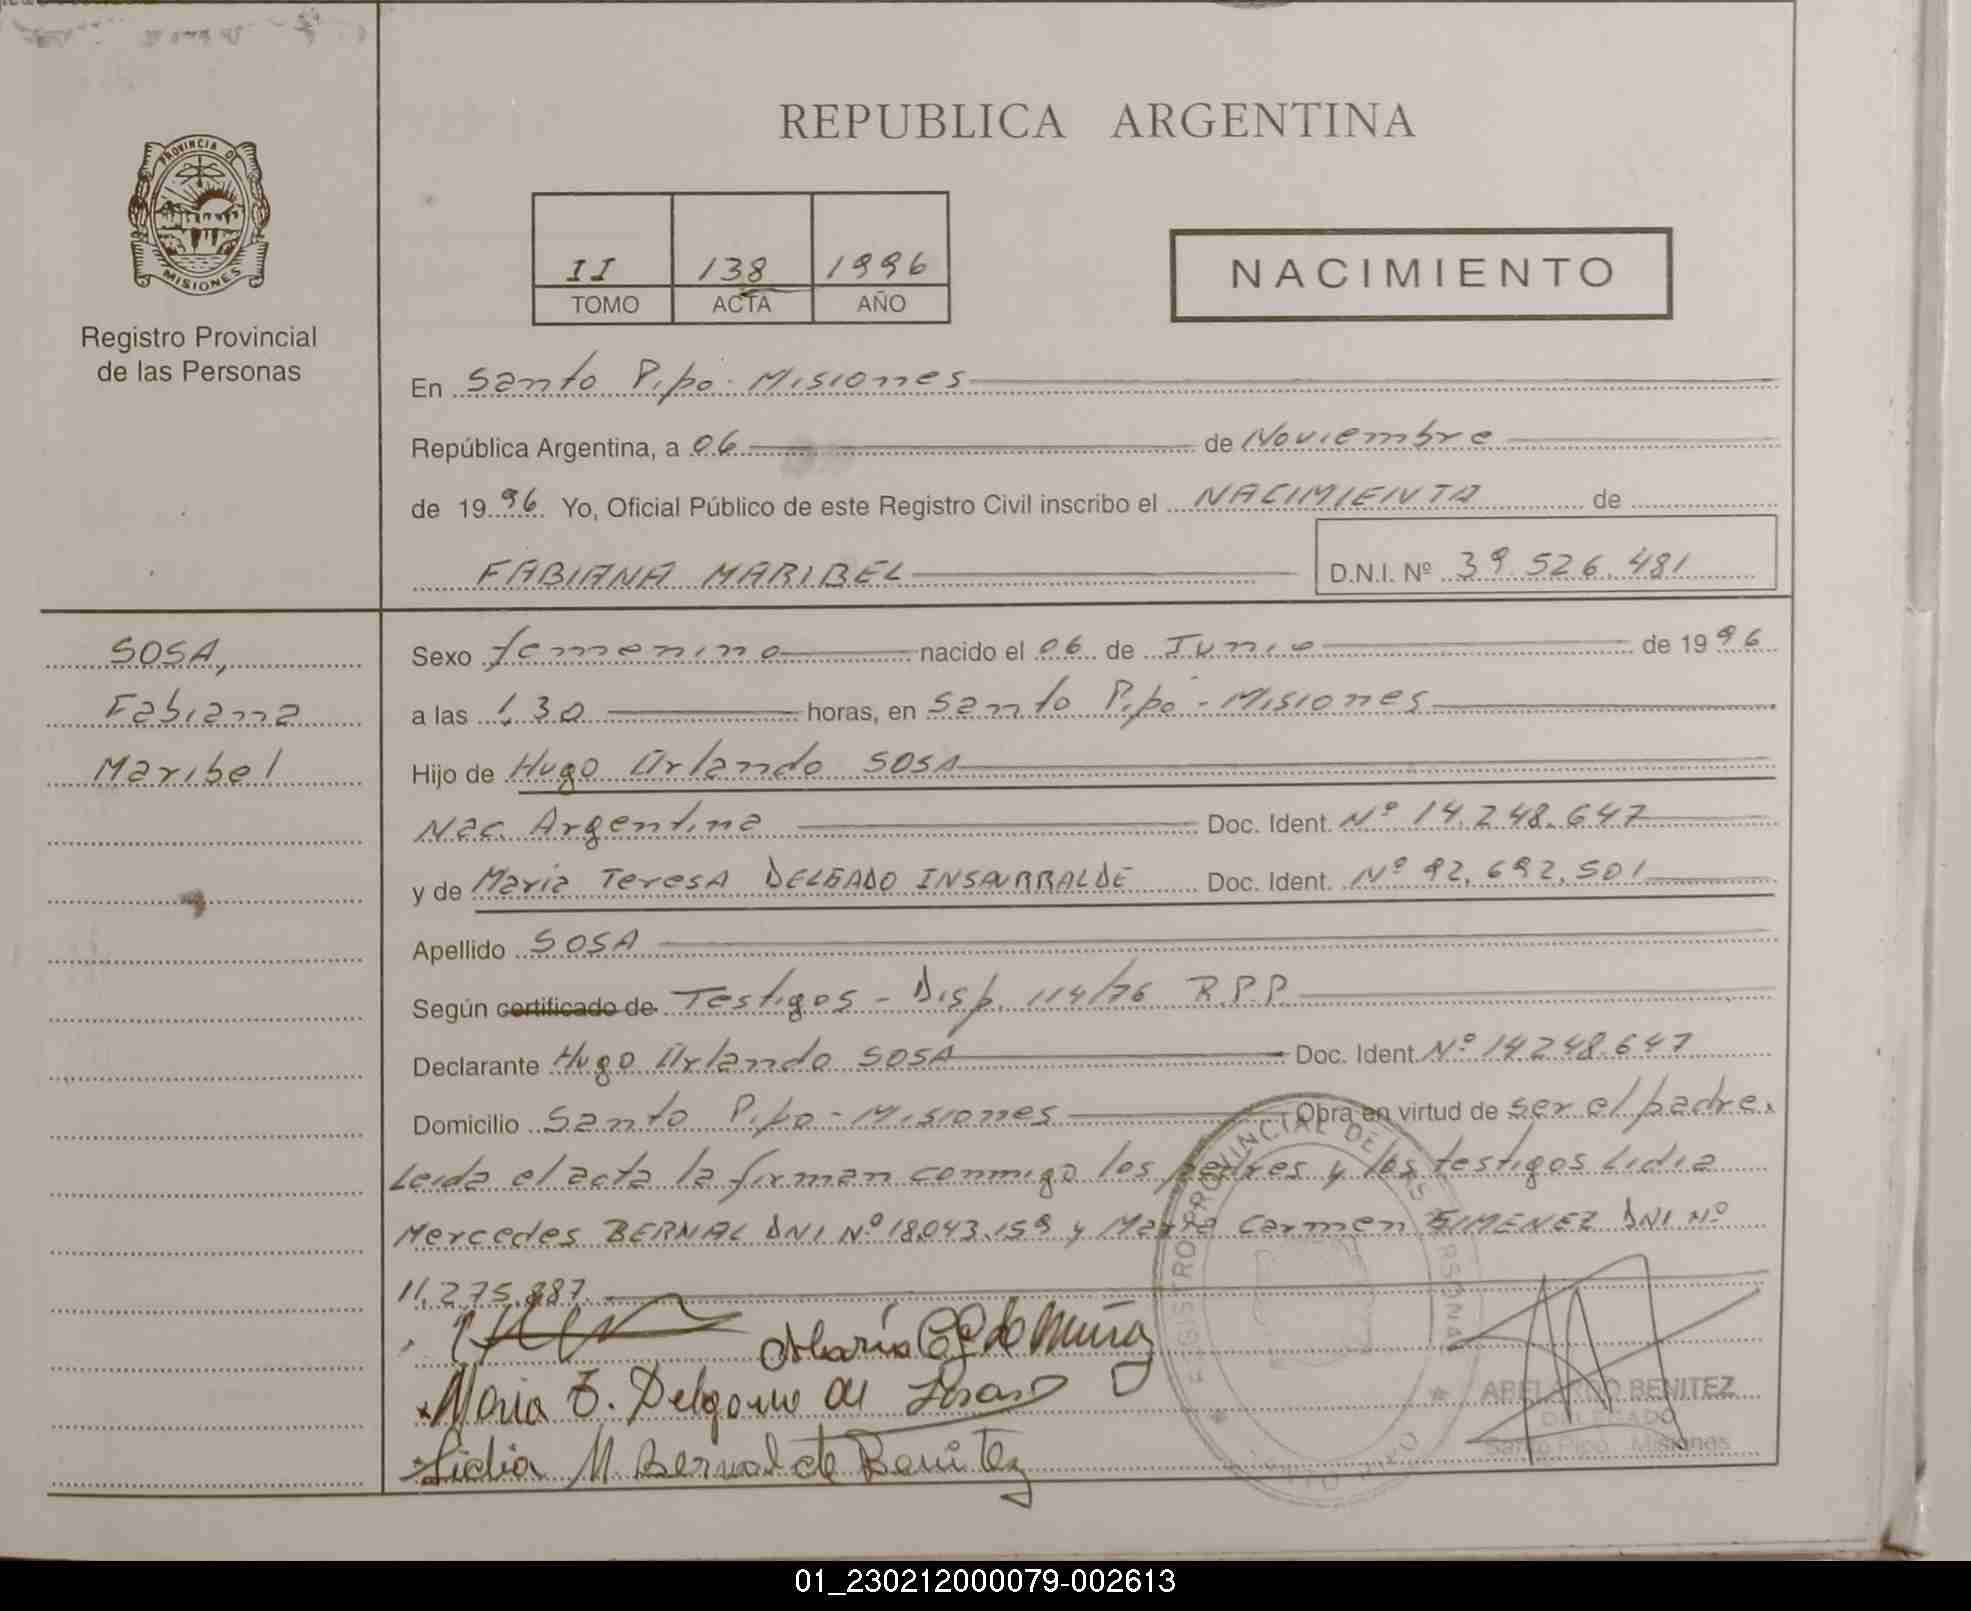 REPUBLICA ARGENTINA
PROVINCIA DE
MISIONES
Registro Provincial
de las Personas
II 138 1996
TOMO ACTA AÑO
NACIMIENTO
En Santo Pipó - Misiones
República Argentina, a 06 de Noviembre
de 1996 Yo, Oficial Público de este Registro Civil inscribo el NACIMIENTO de
FABIANA MARIBEL D.N.I. Nº 39.526.481
SOSA,
Fabiana
Maribel
Sexo femenino nacido el 06 de Junio de 1996
a las 1,30 horas, en Santo Pipó - Misiones
Hijo de Hugo Orlando SOSA
Nac. Argentina Doc. Ident. Nº 14.248.647
y de Maria Teresa DELGADO INSAURRALDE Doc. Ident. Nº 92.692.501
Apellido SOSA
Según certificado de Testigos - Disp. 114/76 R.P.P.
Declarante Hugo Orlando SOSA Doc. Ident. Nº 14.248.647
Domicilio Santo Pipo - Misiones Obra en virtud de ser el padre.
Leida el acta la firman conmigo los padres y los testigos Lidia
Mercedes BERNAL DNI Nº 18.043.159 y Maria Carmen GIMENEZ DNI Nº
11.275.887.
Maria de Muñoz
Maria T. Delgado de Sosa
Lidia M. Bernal de Benitez
REGISTRO PROVINCIAL DE LAS PERSONAS
ABELARDO BENITEZ
DELEGADO
Santo Pipó - Misiones
01_230212000079-002613